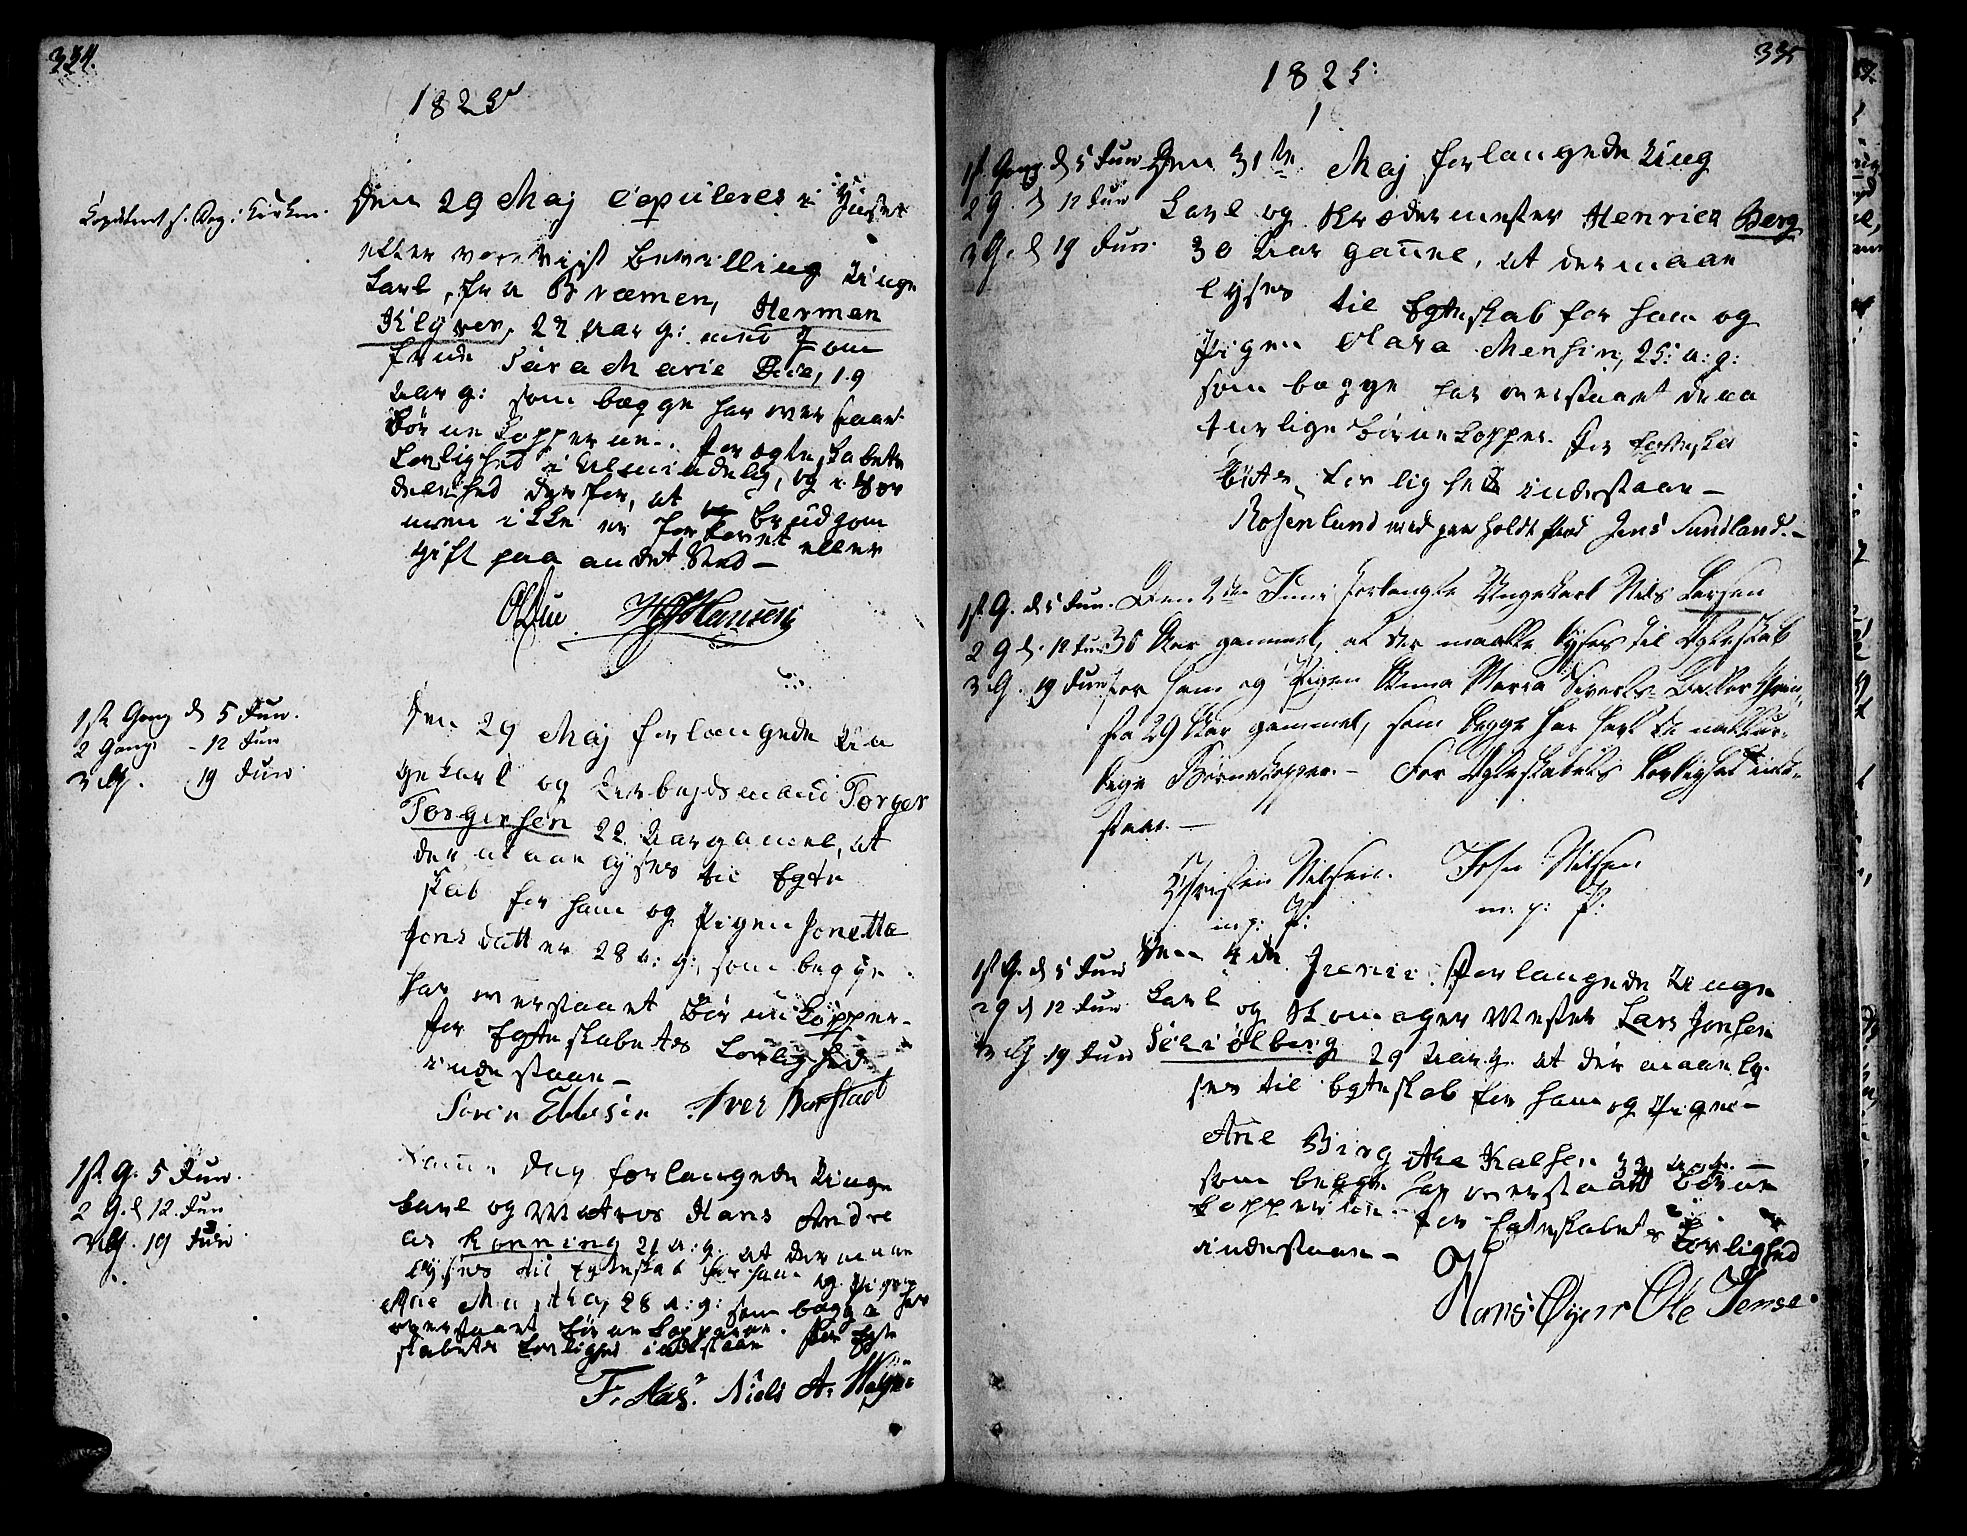 334.
1825
Copuleret s. Dag i Kirken.
Den 29 Maj Copuleres i Huset
efter Bevilling Unge
Karl, fra Bræmen, Herman
Klÿver, 27 Aar g: med Jom
frue Sara Marie Due, 19
Aar g: som begge har overstaaet
Børne Kopperne. For Egteskabets
Lovlighed i Almindelig, og i Sær
deelshed derfor, at Brudgom
men ikke er forlovet eller
gift paa andet Sted —
ODue HHansen
1ste Gang d 5 Jun.
2 Gang - 12 Jun
3 G. 19 Jun.
Den 29 Maj forlangede Un
ge Karl og Arbejdsmand Torger
Torgersen 22 Aar gamel, at
der maae lyses til Egte
skab for ham og Pigen Jonetta
Jonsdatter 28 a: g:, som begge
har overstaaet Børne Kopper-
For Egteskabetes Lovlighed
indestaae —
Soren Ebbesen Iver Barstad
1ste G. 5 Jun.
2 G. d 12. Jun
3 G. 19 Jun.
Samme Dag forlangede Unge
karl og Matros Hans Andre
as Ronning 21 a: g: at der maae
lyses til Egteskab for ham og Pigen
Ane Martha, 28 a: g: som begge har
overstaaet Børne Kopperne. For Egte
skabets Lovlighed indestaae
F. Aas. Niels A.
335
1825:
1ste Gang d 5 Jun
2 G. d 12 Jun
3 G. d 19 Jun.
Den 31te Maj forlangede Ung
Karl og Skrædermester Henrich Berg
30 Aar gamel, at der maae
lyses til Egteskab for ham og
Pigen Mensin, 25: a: g:
som begge har overstaaet de na
turlige Børnekopper. For Egteska
betes Lovlighed indestaae —
Rosenlund med paaholdt Pend Jens Sundland. —
1ste G. d 5 Jun.
2 G d. 12 Jun
3 G. 19 Jun
Den 2den Juni forlangte Ungekarl Niels Larsen
36 Aar gammel, at der maatte lyses til Ægteskab
for ham og Pigen Anna Maria Siverts
fra 29 Aar gammel, som begge har havt de natur-
lige Børnekopper. — For Ægteskabets Lovlighed inde-
staae. —
Christen Nilsen. John Nilsen
m. p: P: m. p: P:
1ste G. d 5 Jun
2 G d 12 Jun
3 G 19 Jun
Den 4de Junii forlangede Unge
Karl og Skomager Mester Lars Jonsen
29 Aar g. at der maae ly-
ses til Egteskab for ham og Pigen —
Ane Birgithe
som begge har overstaaet Børne
kopperne. For Egteskabetes Lovlighed
indestaae —
Hans Øyen Ole Jense